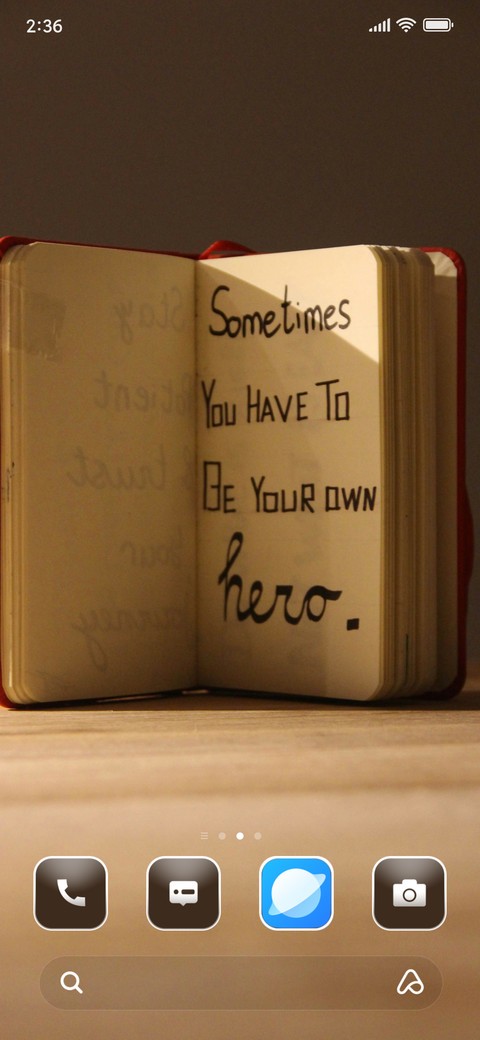 2:36
Sometimes
You HAVE To
BE YOUR OWN
hero.